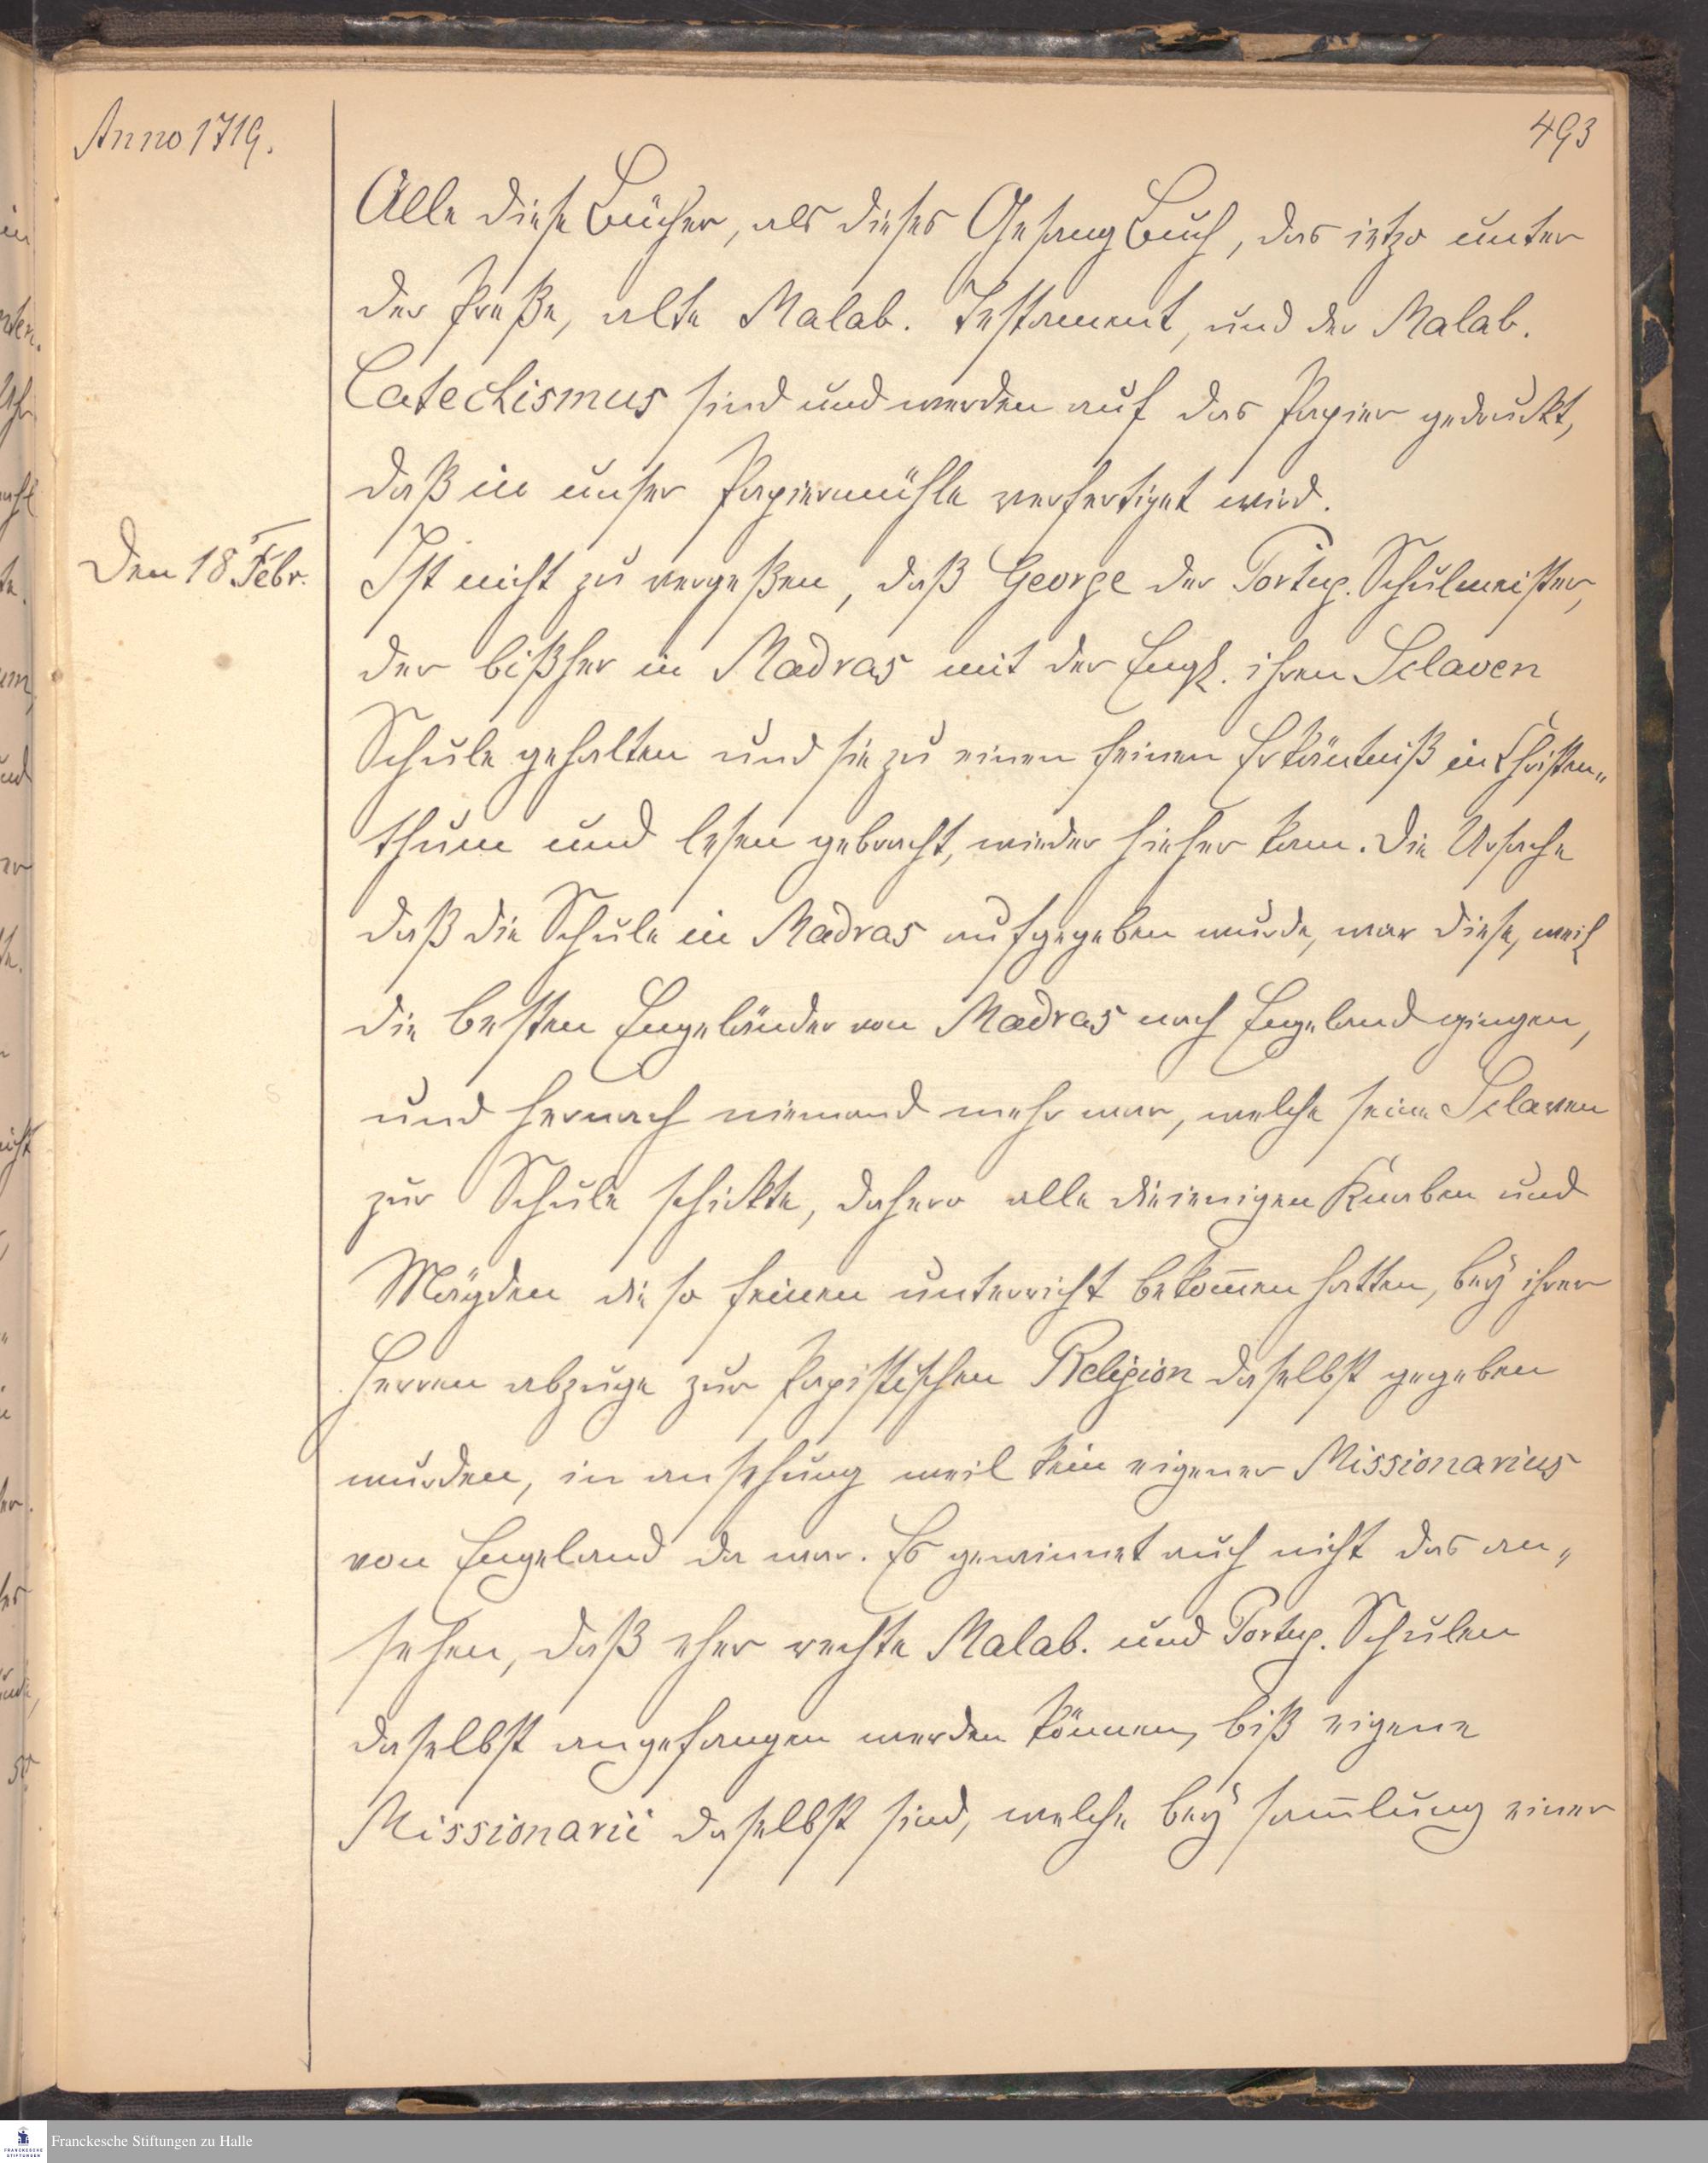 Anno 1719.
493
Alle diese Bücher, als dieses Gesang Buch, das ietzo unter
der Preße, alte Malab. Testament, und der Malab.
Catechismus sind und werden auf das Papier gedruckt,
daß in unser Papiermühle verfertiget wird.
Den 18 Febr.
Ist nicht zu vergeßen, daß George der Portug. Schulmeister,
der bißher in Madras mit der Engl. ihren Sclaven
Schule gehalten und sie zu einen feinen Erkäntniß in Christen„
thum und lesen gebracht, wieder hieher kam. Die Ursache
daß die Schule in Madras aufgegeben wurde, war diese, weil
die besten Engeländer von Madras nach Engeland gingen,
und hernach niemand mehr war, welche seine Sclaven
zur Schule schickte, dahero alle dieienigen Knaben und
Mägden die so feinen unterricht bekom̅en hatten, bey ihrer
Herren abzuge zur Papistischen Religion daselbst gegeben
wurden, in ansehung weil kein eigener Missionarius
von Engeland da war. Es gewinnet auch nicht das an„
sehen, daß eher rechte Malab. und Portug. Schulen
daselbst angefangen werden können, biß eigene
Missionarii daselbst sind, welche bey sam̅lung einer
Franckesche Stiftungen zu Halle